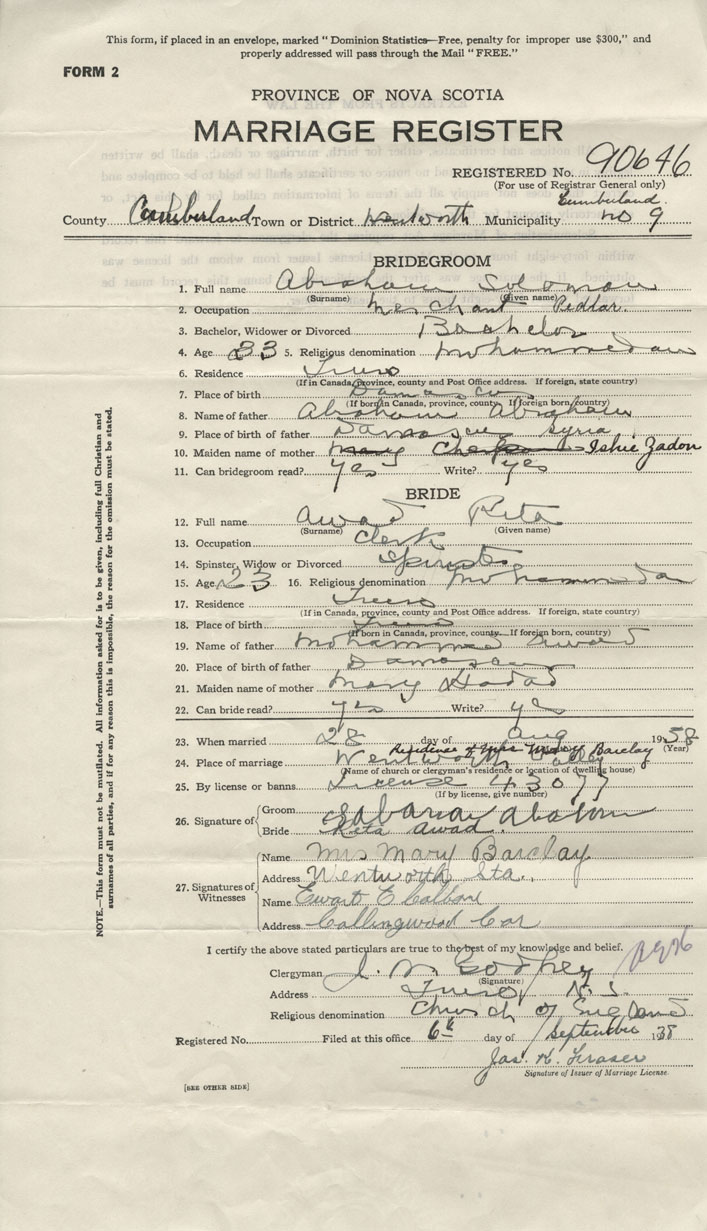 This form, if placed in an envelope, marked "Dominion Statistics—Free, penalty for improper use $300," and
properly addressed will pass through the Mail "FREE."
FORM 2
PROVINCE OF NOVA SCOTIA
MARRIAGE REGISTER
REGISTERED No. 90646
(For use of Registrar General only)
Cumberland
County Cumberland Town or District Wentworth Municipality no 9
BRIDEGROOM
1. Full name Abraham Soloman
(Surname) (Given name)
2. Occupation Merchant Pedlar.
3. Bachelor, Widower or Divorced Bachelor
4. Age 33 5. Religious denomination Mohammedan
6. Residence Truro
(If in Canada, province, county and Post Office address. If foreign, state country)
7. Place of birth Damascus
(If born in Canada, province, county. If foreign born, country)
8. Name of father Abraham Abraham
9. Place of birth of father Damascus Syria
10. Maiden name of mother Mary Ishie Zadon
11. Can bridegroom read? yes Write? yes
BRIDE
12. Full name Awad Rita
(Surname) (Given name)
13. Occupation Clerk
14. Spinster, Widow or Divorced Spinster
15. Age 23 16. Religious denomination Mohammedan
17. Residence Truro
(If in Canada, province, county and Post Office address. If foreign, state country)
18. Place of birth Truro
(If born in Canada, province, county. If foreign born, country)
19. Name of father Mohammed Awad
20. Place of birth of father Damascus
21. Maiden name of mother Mary Hadad
22. Can bride read? yes Write? yes
23. When married 28 day of Aug 1938
(Year)
Residence of Mrs Mary Barclay
24. Place of marriage Wentworth Valley
(Name of church or clergyman's residence or location of dwelling house)
25. By license or banns License 43077
(If by license, give number)
26. Signature of Groom
Bride Rita Awad.
27. Signatures of Witnesses
Name Mrs Mary Barclay
Address Wentworth Sta.
Name Ewart E
Address Collingwood Cor
I certify the above stated particulars are true to the best of my knowledge and belief.
Clergyman J. M. Godfrey
(Signature)
Address Truro, N. S.
Religious denomination Church of England
Registered No. Filed at this office 6th day of September 1938
Jas. H. Fraser
Signature of Issuer of Marriage License
[SEE OTHER SIDE]
NOTE.—This form must not be mutilated. All information asked for is to be given, including full Christian and
surnames of all parties, and if for any reason this is impossible, the reason for the omission must be stated.